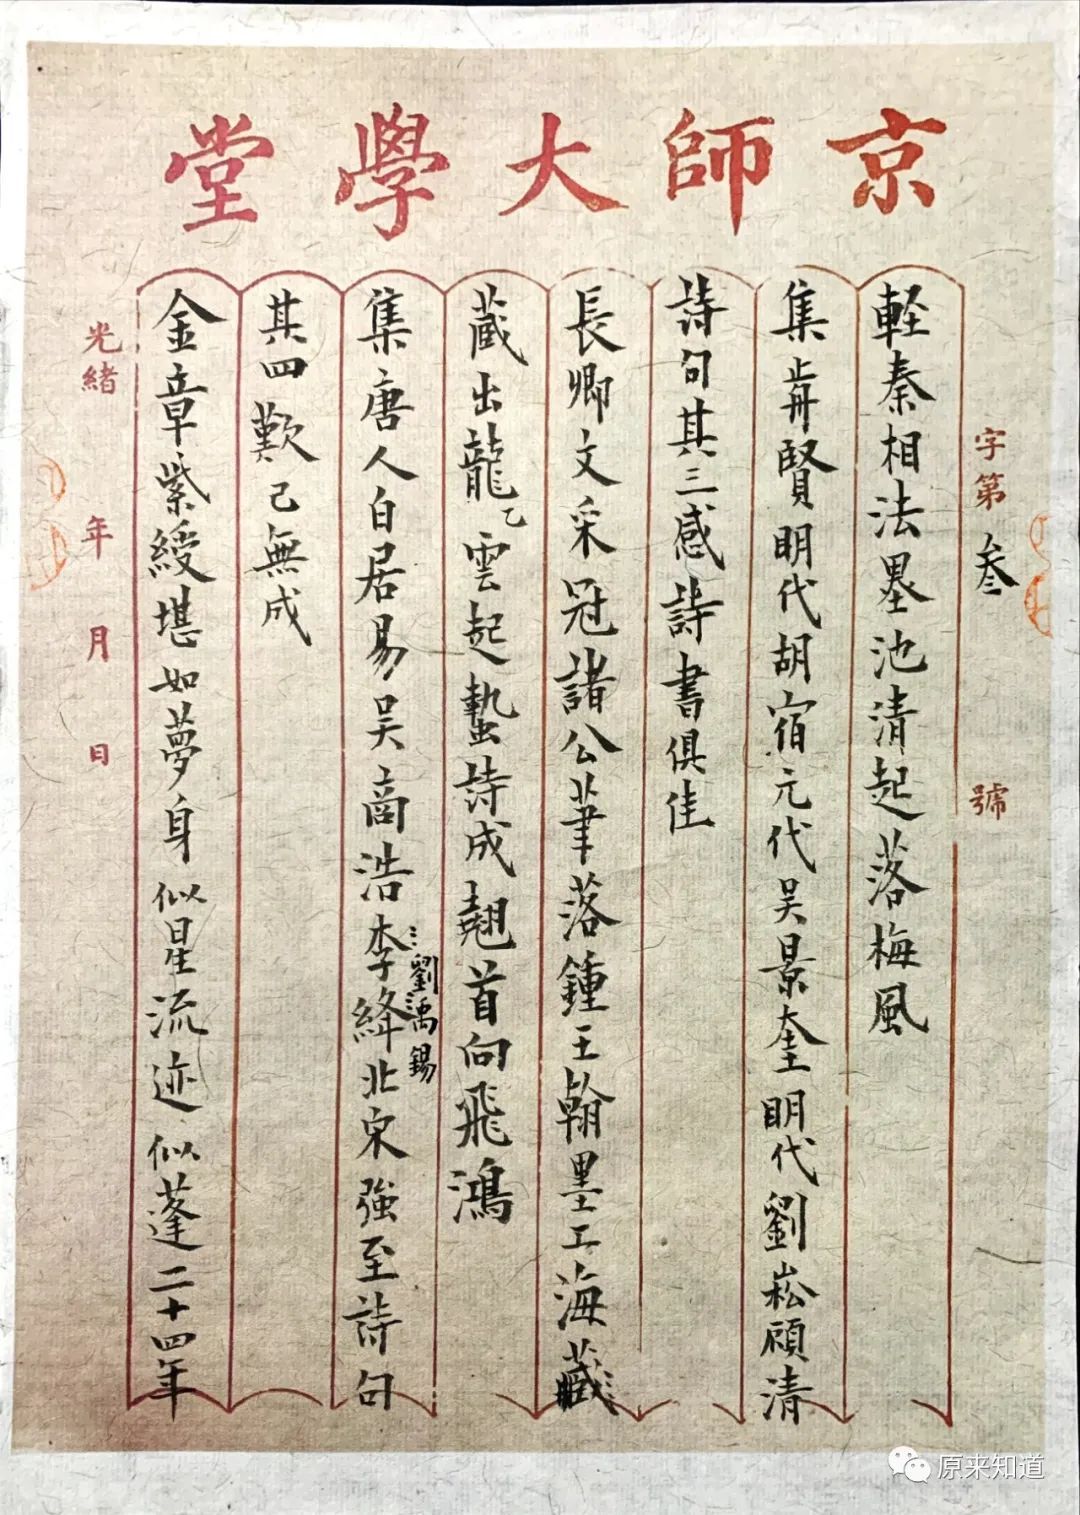 京師大學堂
字第叁號
軽秦相法墨池清起落梅風
集歬賢明代胡宿元代吴景奎明代劉崧顧清
詩句其三感詩書俱佳
長卿文采冠諸公筆落鍾王翰墨工海藏
蔵出龍乙雲起蟄詩成翹首向飛鴻
集唐人白居易吴商浩李絳劉禹錫北宋強至詩句
其四歎己無成
金章紫綬堪如夢身似星流迹似蓬二十四年
光緒年月日
原来知道